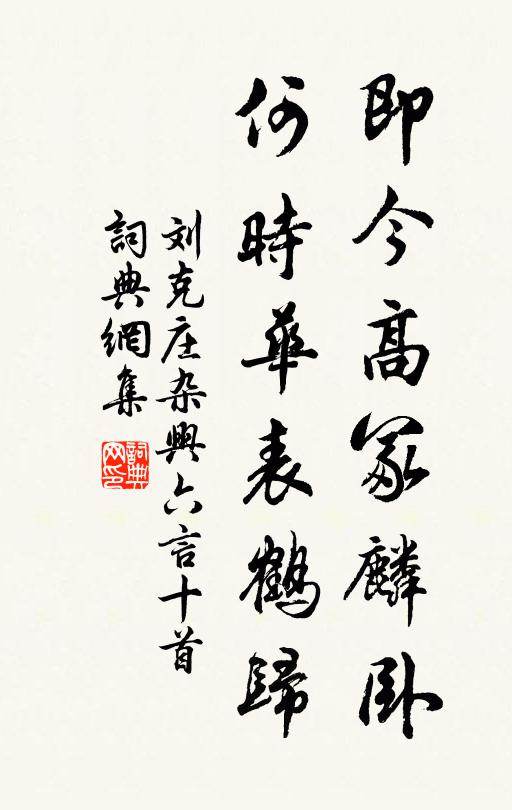 即今高冢麟卧
何時華表鶴歸
刘克庄杂興六言十首
詞典網集
詞典网印